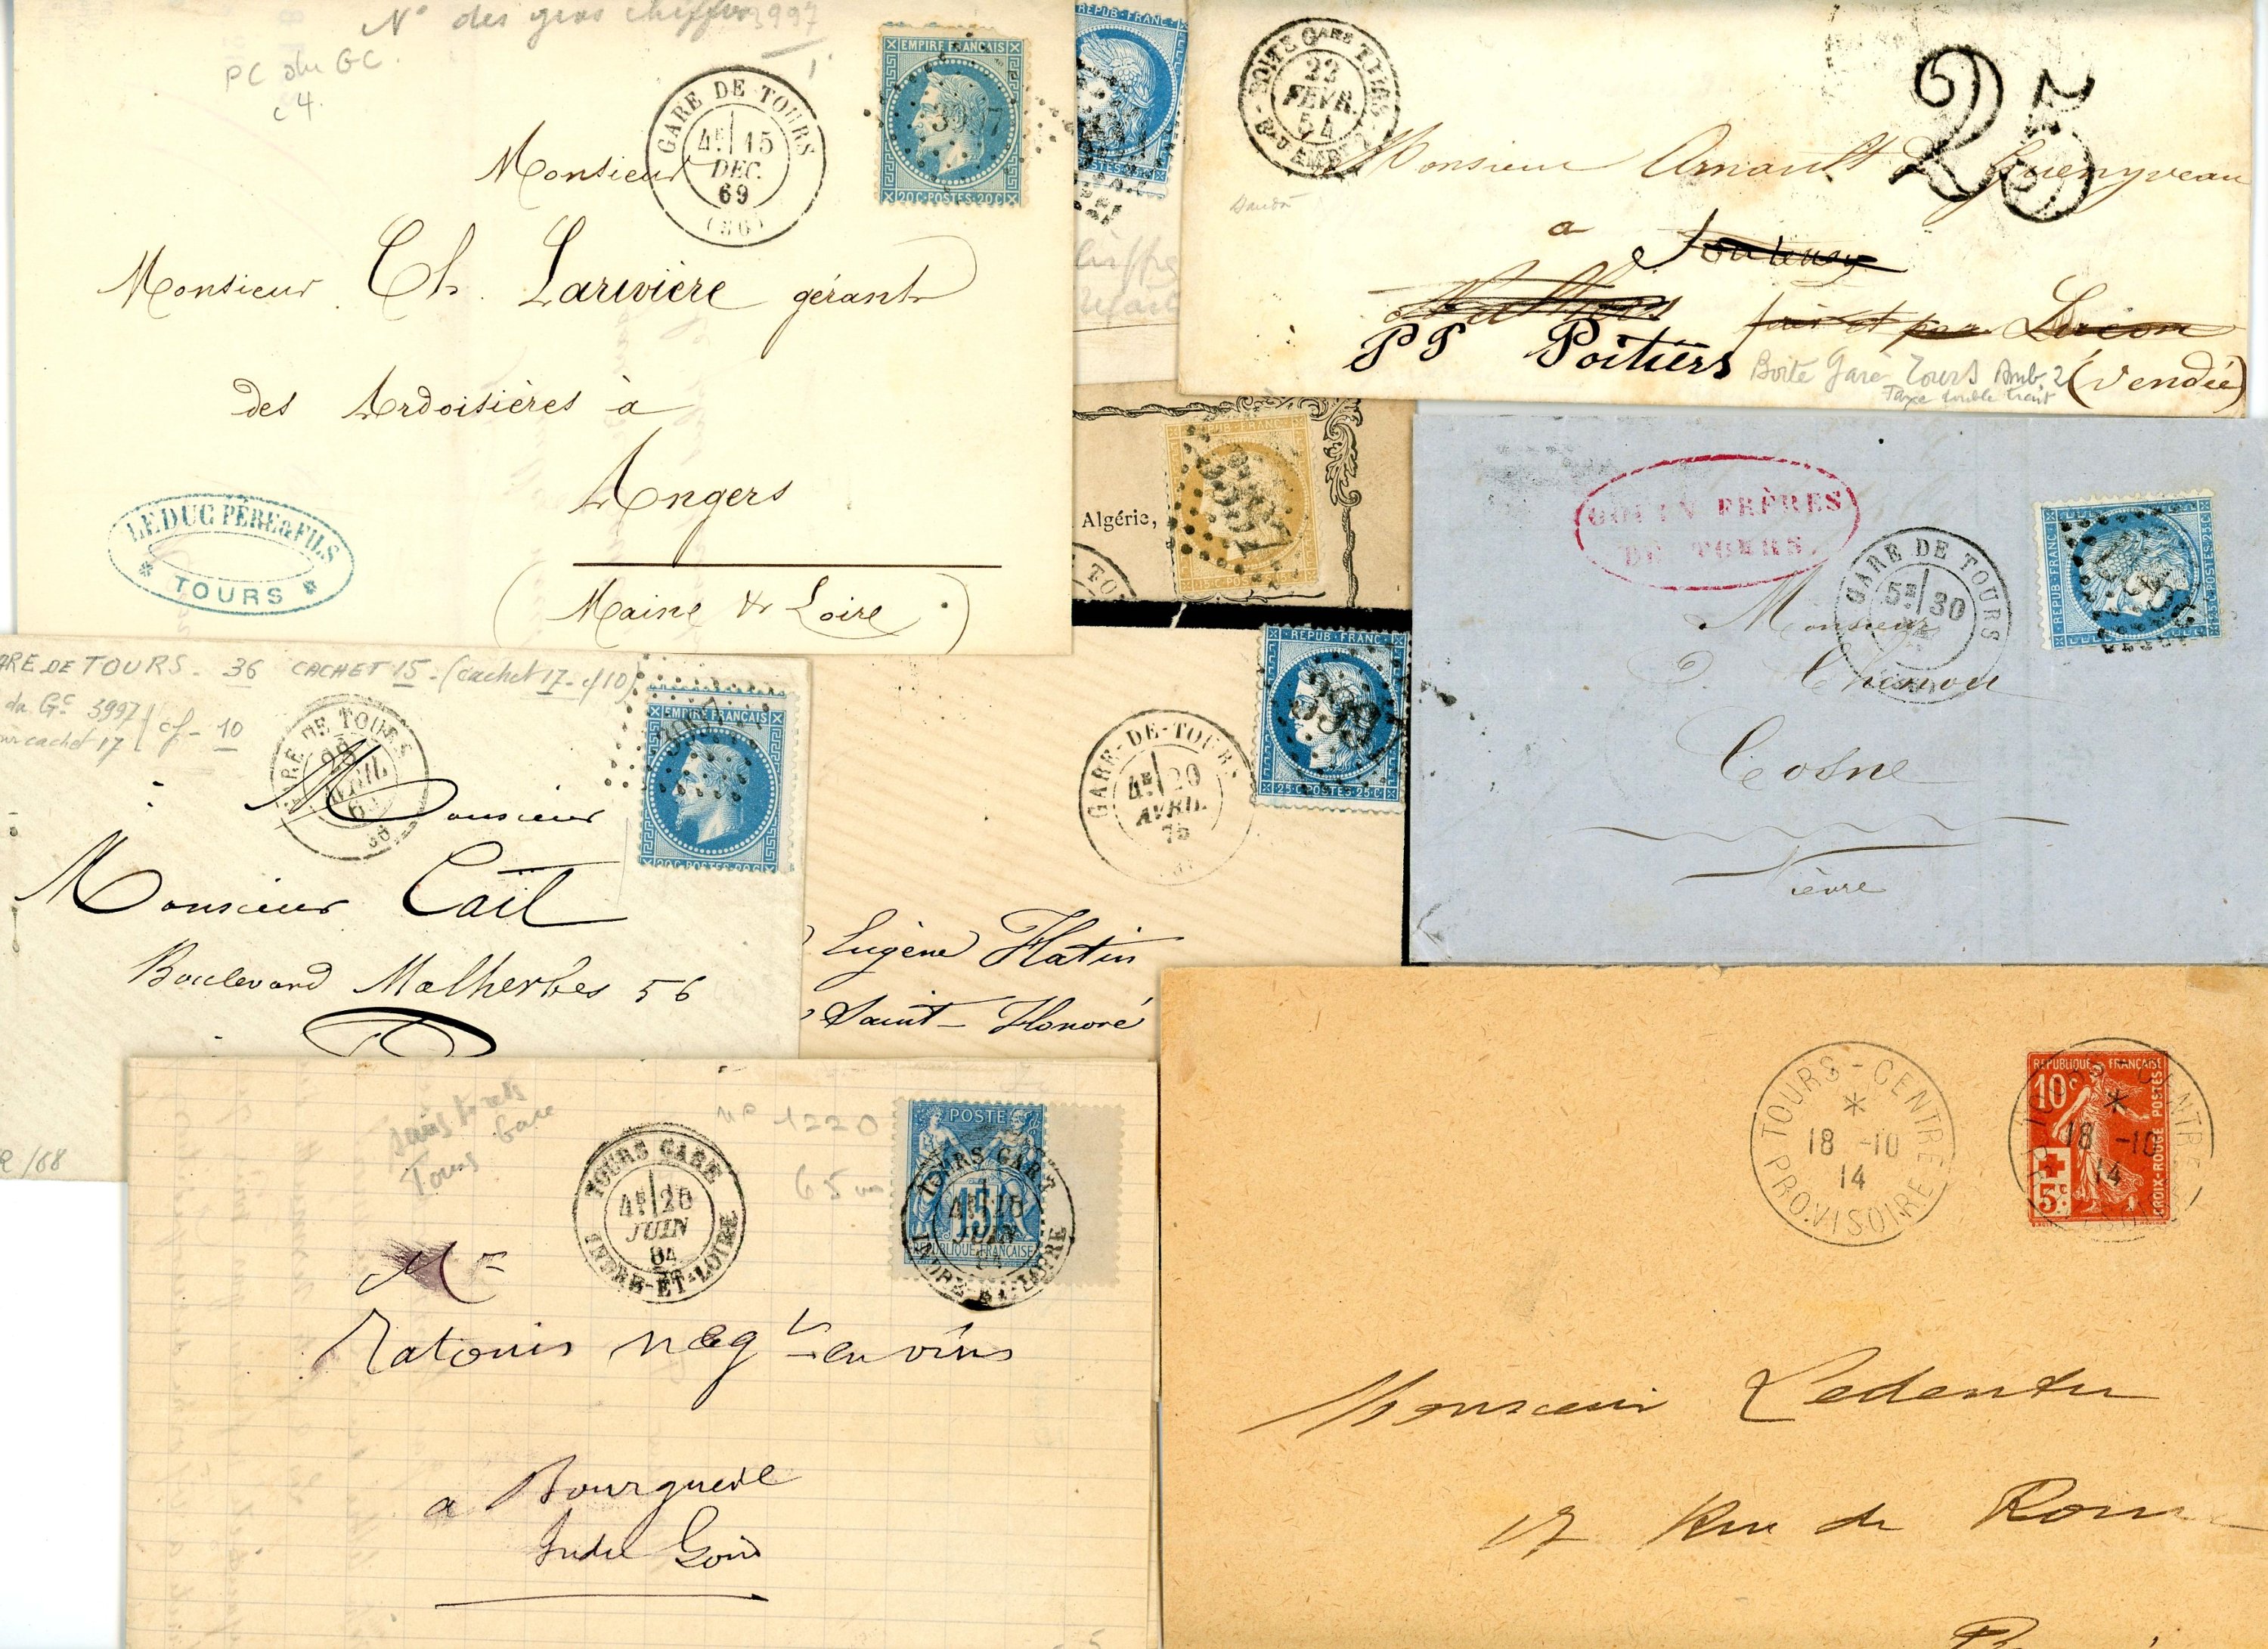 N° des gros chiffres 3997
PC du GC
c 4
GARE DE TOURS
4E 15
DEC.
69
(36)
EMPIRE FRANÇAIS
3997
20C·POSTES·20C
Monsieur
Monsieur Ch. Larivière gérant
des Ardoisières à
Angers
(Maine & Loire)
LEDUC PÈRE & FILS
TOURS
REPUB·FRANC
BOITE GARE TOURS
22
FEVR.
54
25
Monsieur Arnault
a
PP Poitiers
Luçon
(Vendée)
Boite Gare Tours Amb. 2
Taxe double trait
REPUB·FRANC
3997
15·C·POSTES
Algérie,
FRÈRES
DE TOURS
GARE DE TOURS
5E 30
REPUB·FRANC
25·C·POSTES·25·C
Monsieur
Cosne
Nièvre
ARE DE TOURS - 36 CACHET 15 - (cachet 17 - cf 10)
du Gc 3997 cf - 10
cachet 17
GARE DE TOURS
28
AVRIL
36
EMPIRE FRANÇAIS
3997
20C·POSTES·20C
Monsieur
Monsieur Cail
Boulevard Malherbes 56
/68
GARE-DE-TOURS
4E 20
AVRIL
75
REPUB·FRANC
3997
25·C·POSTES·25·C
Eugène Hatin
Saint-Honoré
Tours
Gare
N° 1220
65
TOURS GARE
4E 26
JUIN
84
INDRE-ET-LOIRE
POSTES
15
REPUBLIQUE FRANÇAISE
TOURS GARE
JUIN
INDRE-ET-LOIRE
Mr
Ratouis negt en vins
a Bourgueil
Indre Loire
TOURS-CENTRE
*
18 -10
14
PROVISOIRE
REPUBLIQUE FRANÇAISE
10c
5c
CROIX-ROUGE POSTES
18 -10
14
Monsieur Ledentu
17 Rue de Rome